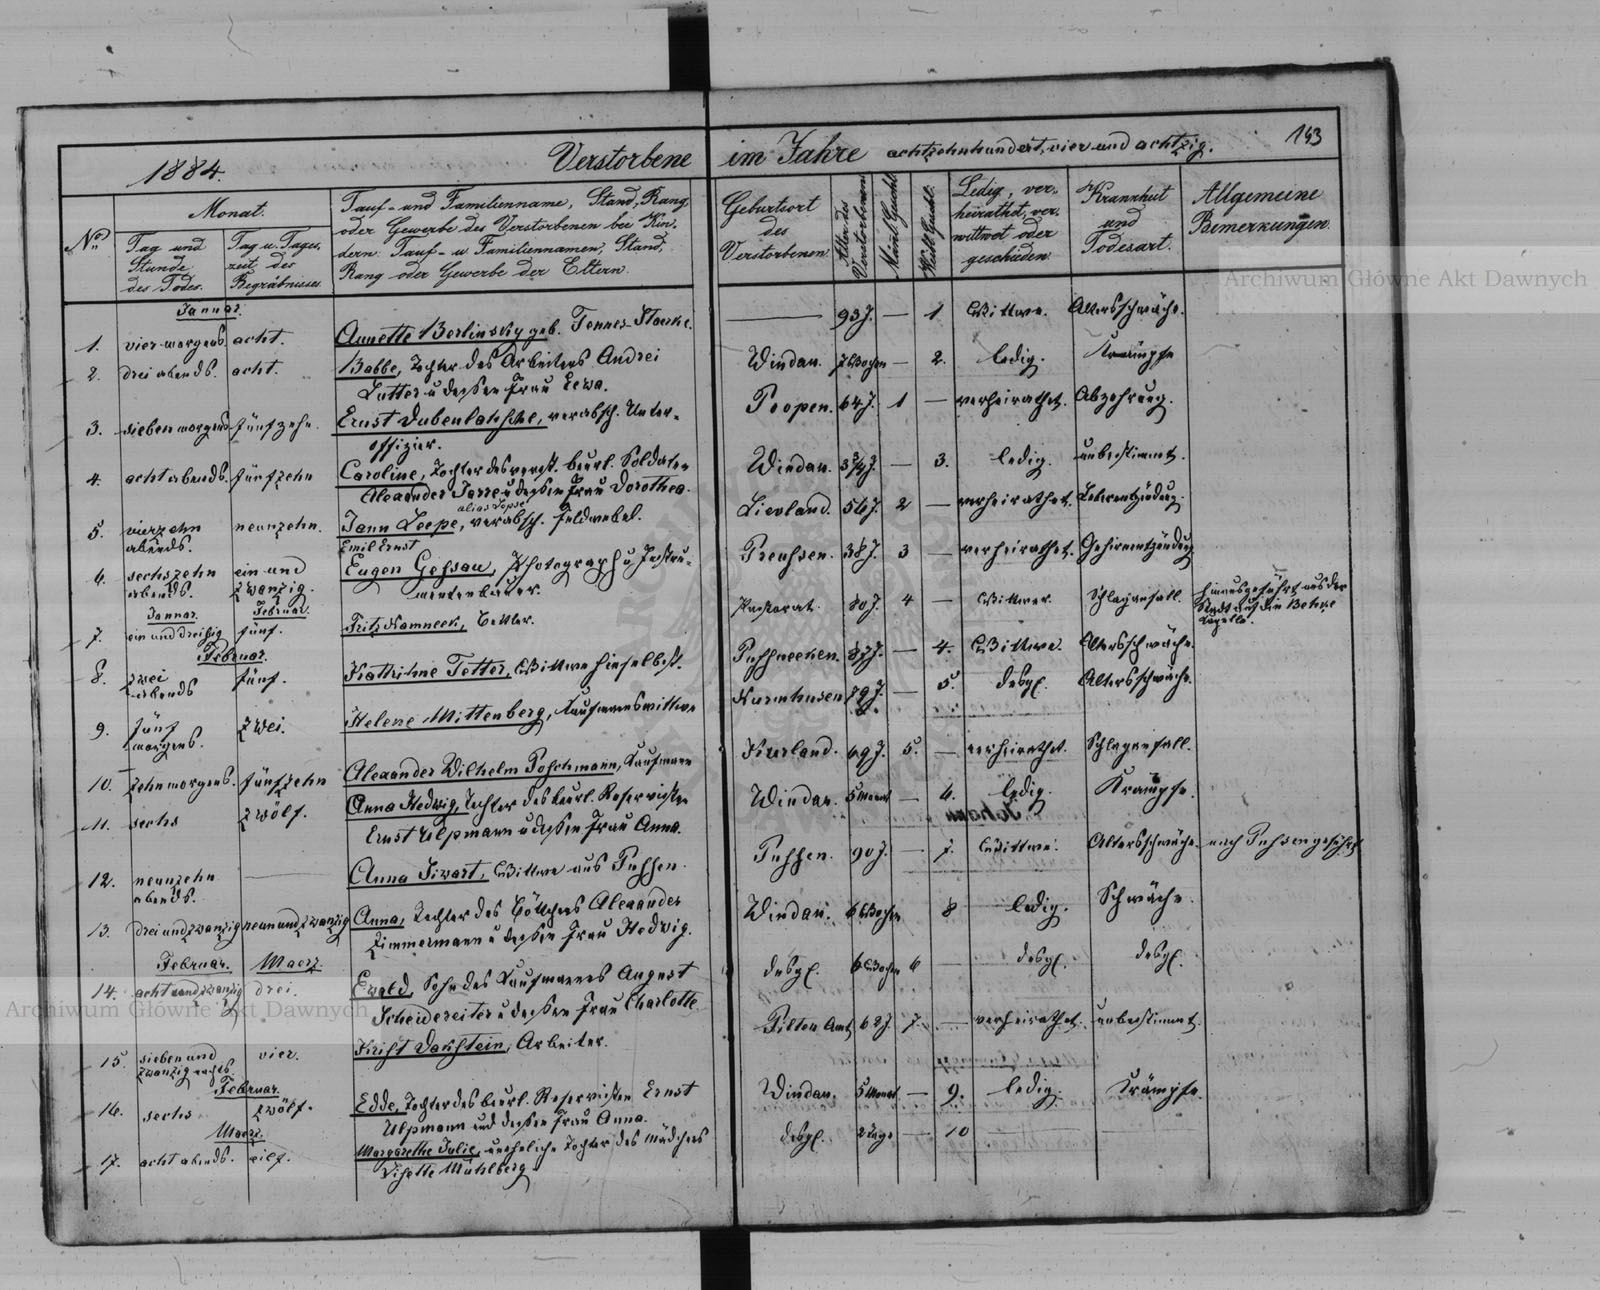 1884.
Verstorbene im Jahre achtzehnhundert, vier und achtzig.
143
No.
Monat.
Tag und Stunde des Todes.
Tag u. Tageszeit des Begräbnisses
Tauf- und Familienname, Stand, Rang,
oder Gewerbe des Verstorbenen bei Kin-
dern: Tauf- u Familiennamen, Stand,
Rang oder Gewerbe der Eltern.
Geburtsort des Verstorbenen.
Alter des Verstorbenen
Männl. Geschl.
Weibl. Geschl.
Ledig, ver-
heirathet, ver-
wittwet oder
geschieden
Krankheit
und
Todesart.
Allgemeine
Bemerkungen.
Januar.
1. vier morgens. acht. Annette Berlinsky geb. — 93 J. — 1. Wittwe. Altersschwäche.
2. drei abends. acht. Babbe, Tochter des Arbeiters Andrei Windau. 7 Wochen — 2. ledig. Krämpfe
Lutter u dessen Frau Eewa.
3. sieben morgens fünfzehn. Ernst verabsch. Unter- Poopen. 64 J. 1 — verheirathet. Abzehrung.
offizier.
4. acht abends. fünfzehn Caroline, Tochter des verst. beurl. Soldaten Windau. 3 3/4 J. — 3. ledig. unbestimmt.
Alexander u dessen Frau Dorothea.
alias
5. vierzehn neunzehn. Jann Leepe, verabsch. Feldwebel. Lievland. 56 J. 2 — verheirathet.
abends.
Emil Ernst
6. sechszehn ein und Eugen Gessau, Photograph u Instru- Preussen. 38 J. 3 — verheirathet. Gehirnentzündung
abends. zwanzig. mentenbauer.
Januar. Februar.
7. ein und dreißig fünf. Fritz Namneek, Pastorat. 80 J. 4 — Wittwer. Schlaganfall. hinausgeführt aus der
Stadt auf die
Capelle.
Februar.
8. zwei fünf. Kathrine Tetter, Wittwe hieselbst. 87 J. — 4. Wittwe. Altersschwäche.
abends
9. fünf zwei. Helene Mittenberg, Kaufmannswittwe 79 J. — 5. desgl. Altersschwäche.
morgens.
10. zehn morgens. fünfzehn Alexander Wilhelm Poschmann, Kaufmann Kurland. 69 J. 5. — verheirathet. Schlaganfall.
11. sechs zwölf. Anna Hedwig, Tochter des beurl. Reservisten Windau. 5 Monat — 6. ledig. Krämpfe.
Ernst Ulpmann u dessen Frau Anna.
12. neunzehn — Anna Siwart, Wittwe aus Puhssen. Puhssen. 90 J. — 7. Wittwe. Altersschwäche. nach Puhssen geführt
abends.
13. drei und zwanzig neun und zwanzig Anna, Tochter des Böttchers Alexander Windau. 6 Wochen 8 ledig. Schwäche.
Zimmermann u dessen Frau Hedwig.
Februar. Maerz.
14. acht und zwanzig drei. Ewald, Sohn des Kaufmannes August desgl. 6 Wochen 6 — desgl. desgl.
Scheidereiter u dessen Frau Charlotte
15. sieben und vier. Krist Dakstein, Arbeiter. Pilten Amt 62 J. 7. — verheirathet. unbestimmt.
zwanzig nachts.
Februar.
16. sechs zwölf. Edde, Tochter des beurl. Reservisten Ernst Windau. 5 Monat — 9. ledig. Krämpfe.
Ulpmann und dessen Frau Anna.
Maerz.
17. acht abends. eilf. Margarethe Julie, uneheliche Tochter des Mädchens desgl. 2 Tage — 10 —
Lisette Mühlberg
Archiwum Główne Akt Dawnych
Archiwum Główne Akt Dawnych